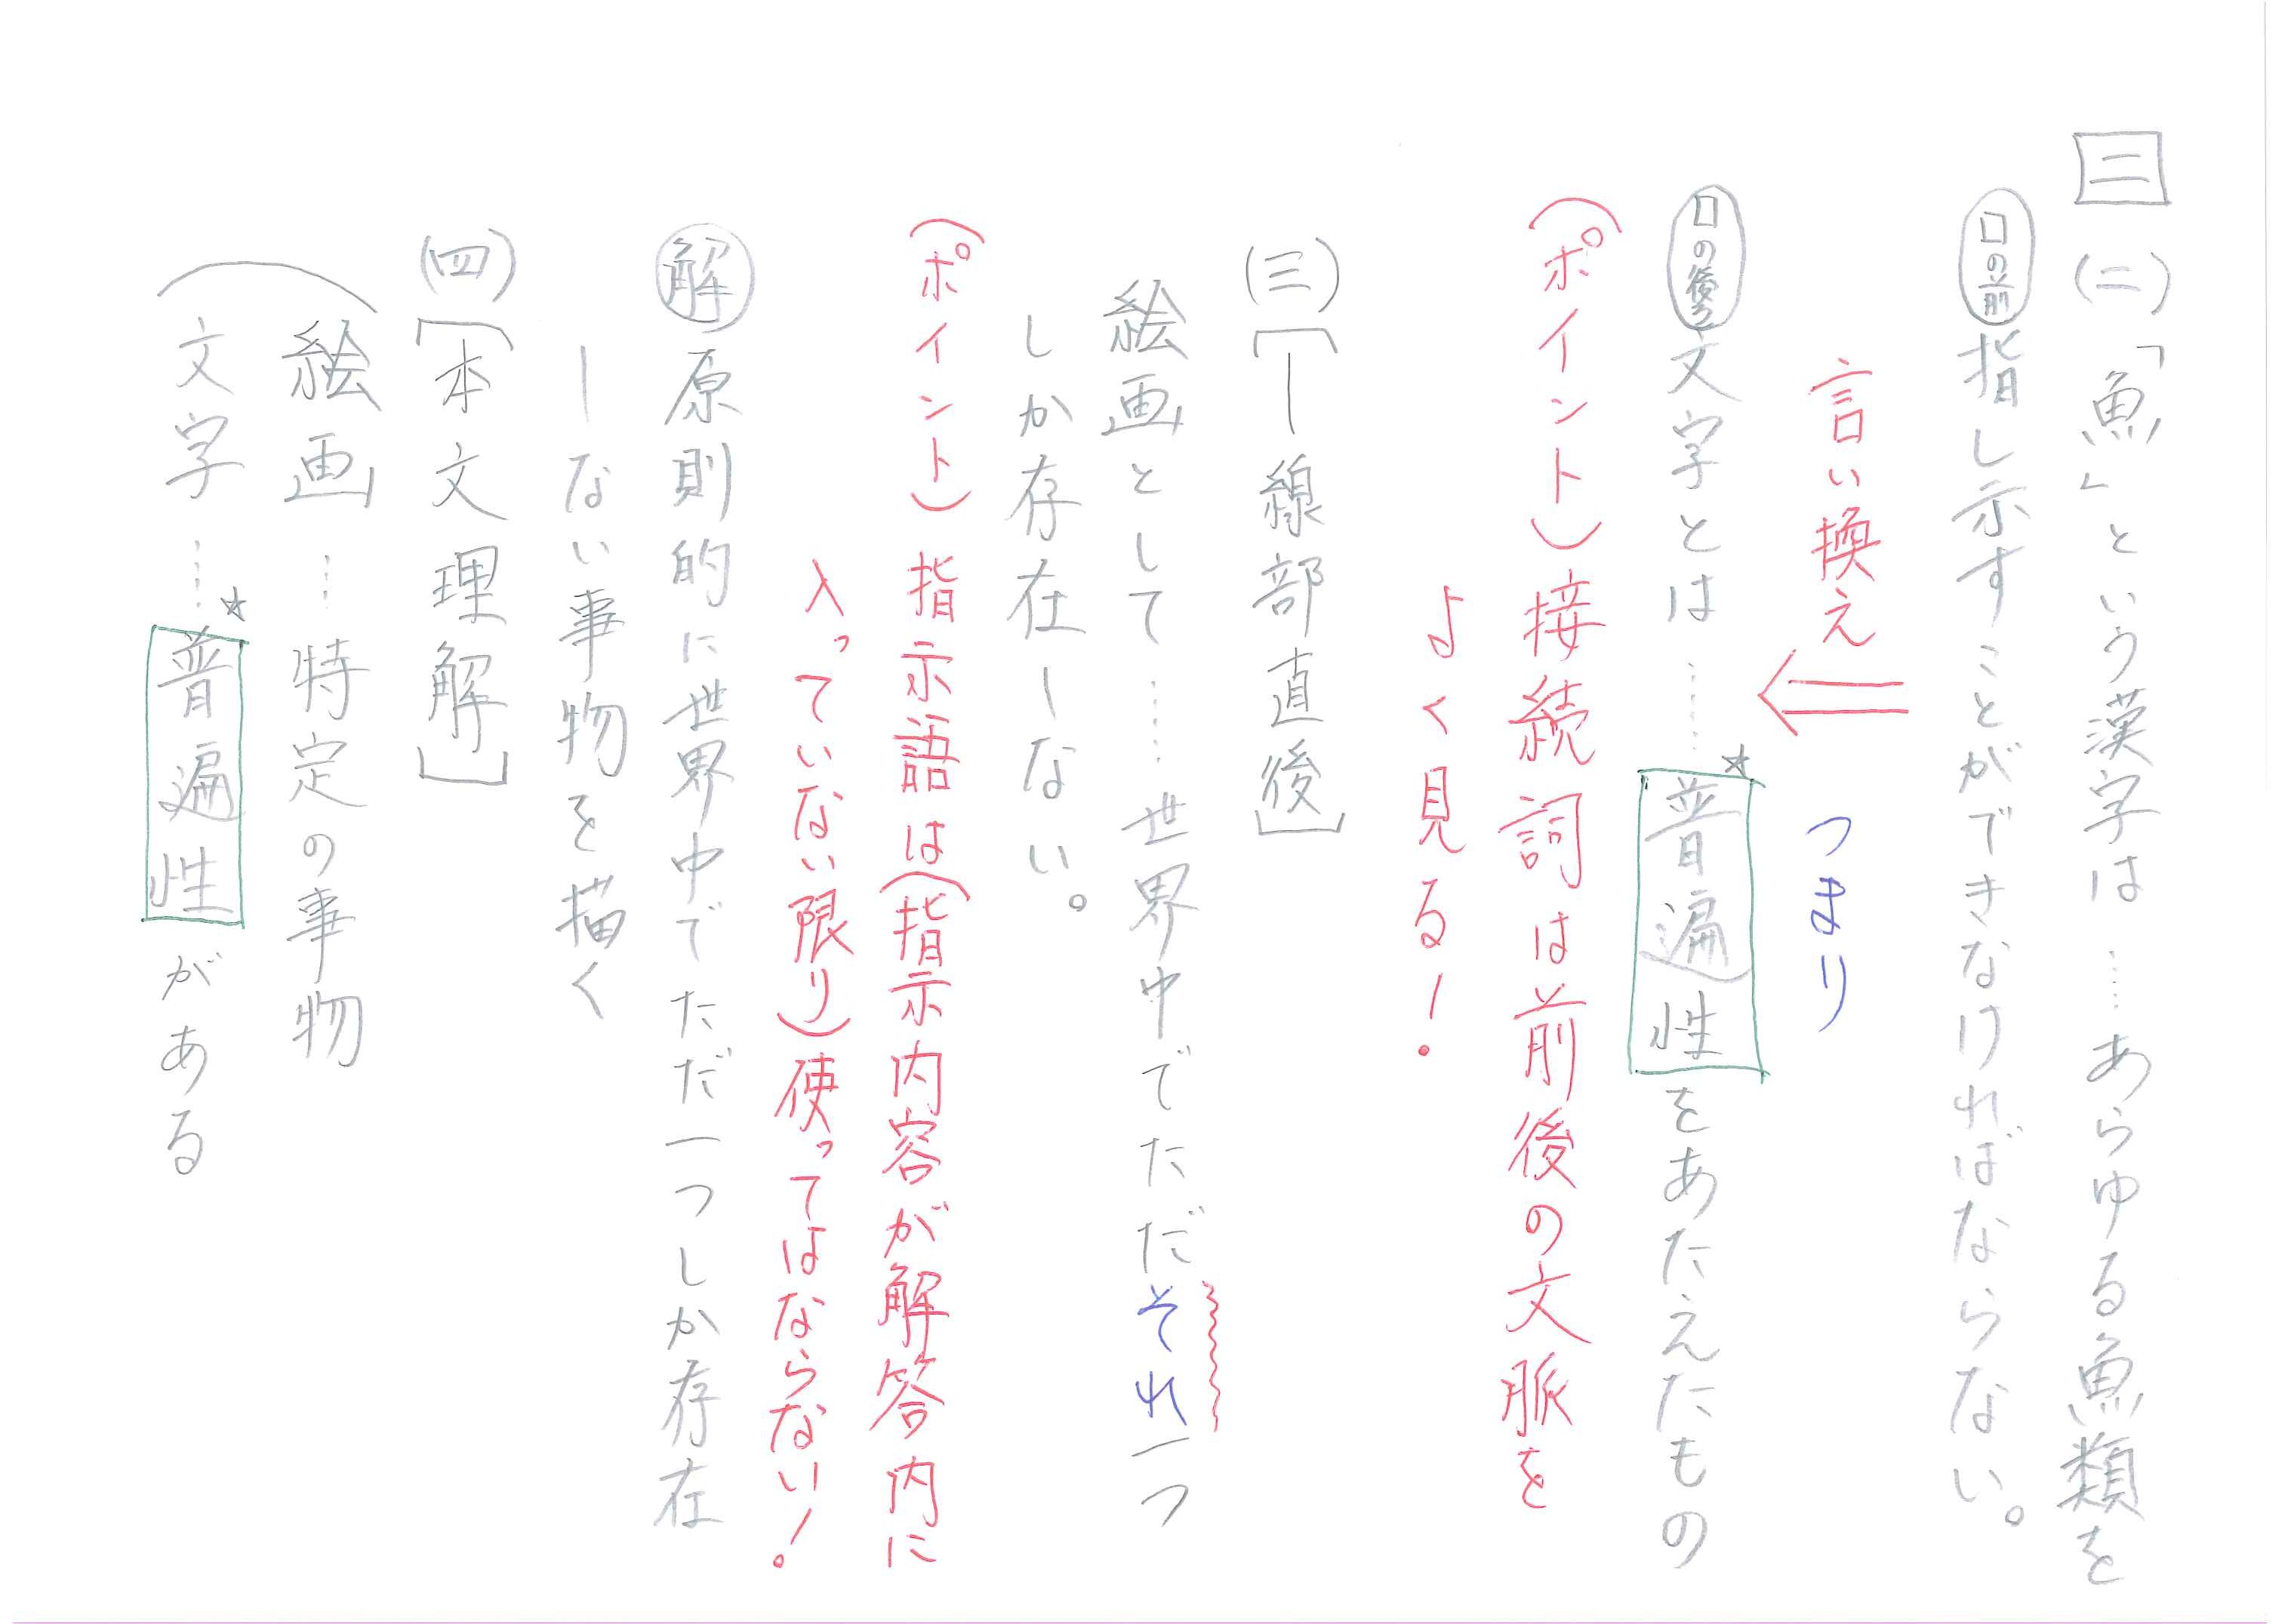 三 (二)「魚」という漢字は……あらゆる魚類を
口の前 指し示すことができなければならない。
言い換え つまり
口の後ろ 文字とは……☆普遍性をあたえたもの
(ポイント)接続詞は前後の文脈を
よく見る！
(三)[―線部直後]
絵画として……世界中でただそれ一つ
しか存在しない。
(ポイント)指示語は(指示内容が解答内に
入っていない限り)使ってはならない！
解 原則的に世界中でただ一つしか存在
しない事物を描く
(四)[本文理解]
絵画……特定の事物
文字……☆普遍性がある